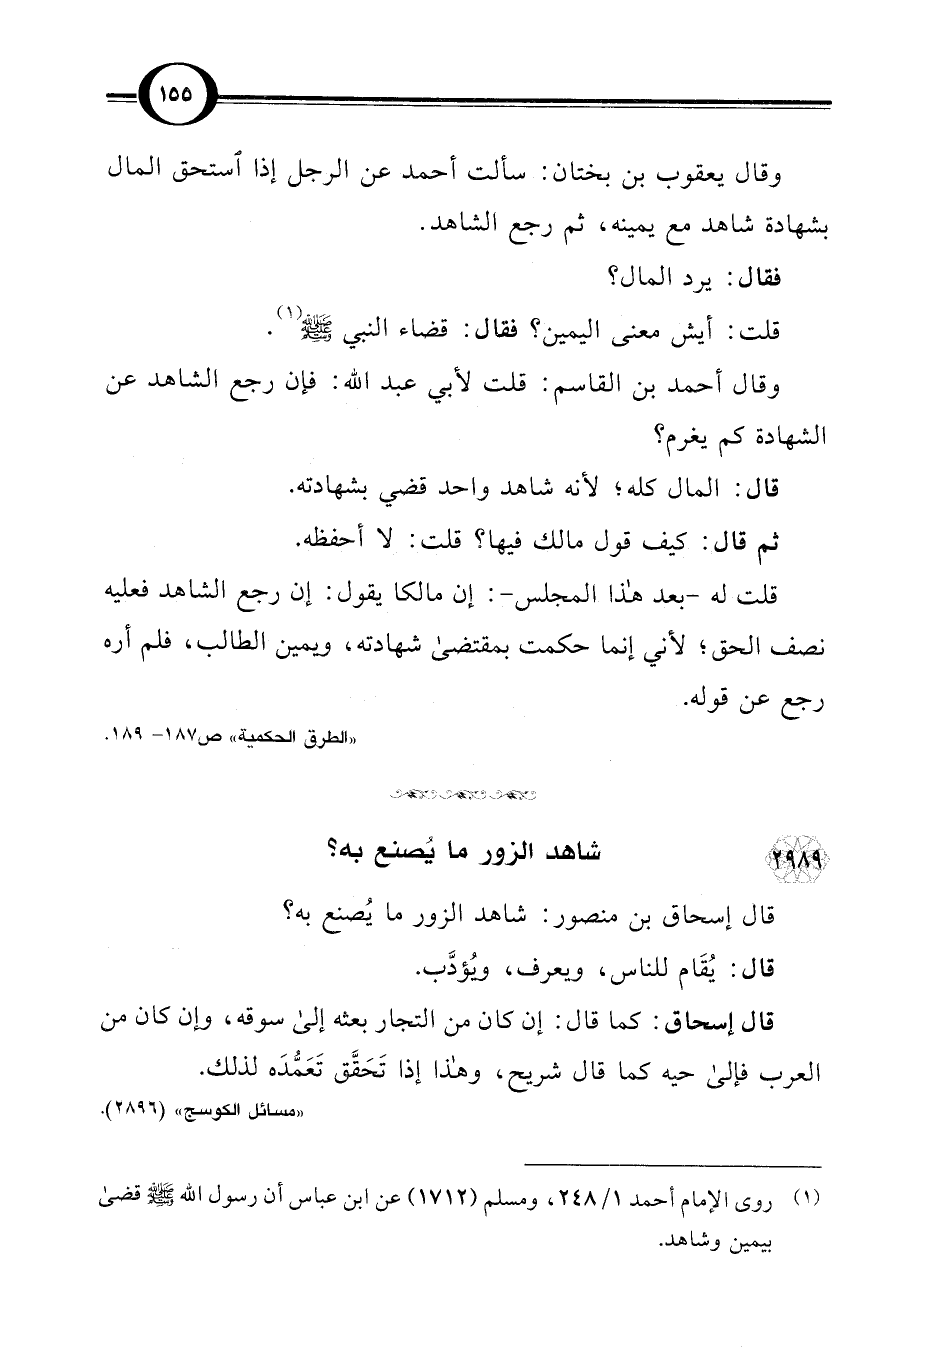 ١٥٥
وقال يعقوب بن بختان: سألت أحمد عن الرجل إذا ٱستحق المال
بشهادة شاهد مع يمينه، ثم رجع الشاهد.
فقال: يرد المال؟
قلت: أيش معنى اليمين؟ فقال: قضاء النبي ﷺ(١).
وقال أحمد بن القاسم: قلت لأبي عبد الله: فإن رجع الشاهد عن
الشهادة كم يغرم؟
قال: المال كله؛ لأنه شاهد واحد قضي بشهادته.
ثم قال: كيف قول مالك فيها؟ قلت: لا أحفظه.
قلت له -بعد هذا المجلس-: إن مالكا يقول: إن رجع الشاهد فعليه
نصف الحق؛ لأني إنما حكمت بمقتضىٰ شهادته، ويمين الطالب، فلم أره
رجع عن قوله.
«الطرق الحكمية» ص١٨٧- ١٨٩.
٢٩٨٩ شاهد الزور ما يُصنع به؟
قال إسحاق بن منصور: شاهد الزور ما يُصنع به؟
قال: يُقَام للناس، ويعرف، ويُؤدَّب.
قال إسحاق: كما قال: إن كان من التجار بعثه إلىٰ سوقه، وإن كان من
العرب فإلىٰ حيه كما قال شريح، وهٰذا إذا تَحَقَّق تَعَمُّدَه لذلك.
«مسائل الكوسج» (٢٨٩٦).
(١) روى الإمام أحمد ١/ ٢٤٨، ومسلم (١٧١٢) عن ابن عباس أن رسول الله ﷺ قضىٰ
بيمين وشاهد.